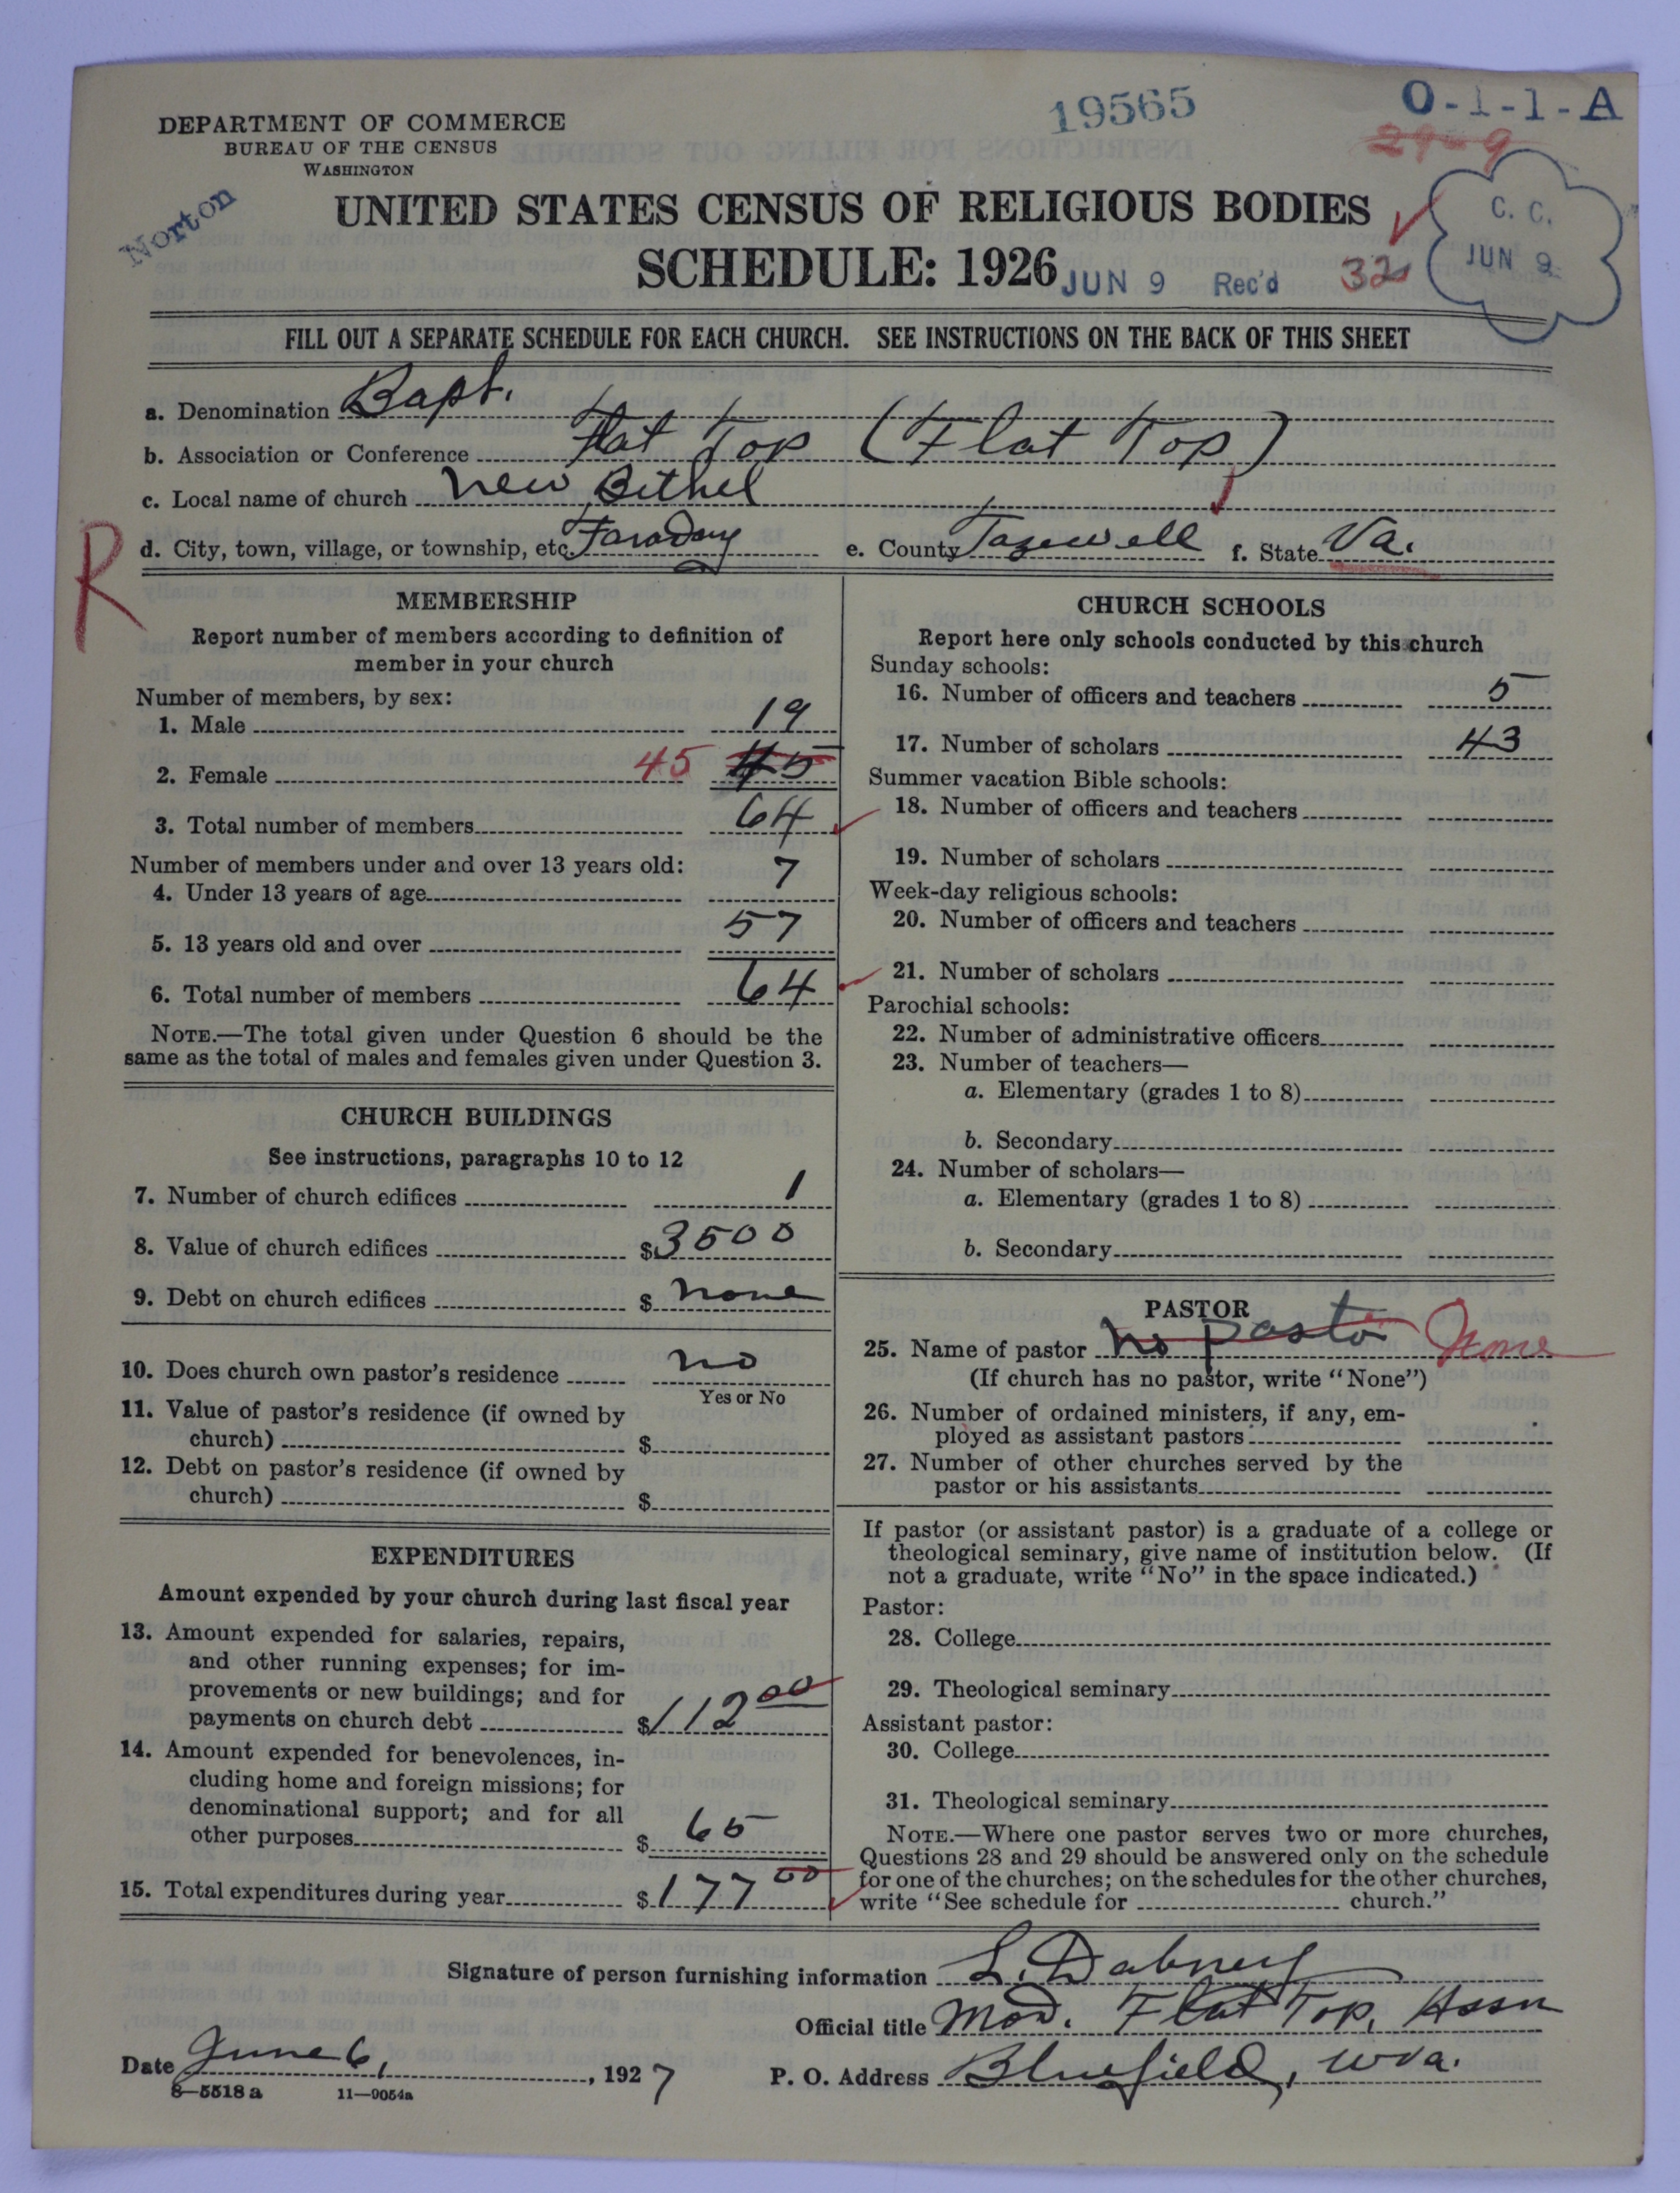 19565
O-1-1-A
DEPARTMENT OF COMMERCE
BUREAU OF THE CENSUS
WASHINGTON
29-9
Norton
UNITED STATES CENSUS OF RELIGIOUS BODIES
SCHEDULE: 1926
JUN 9 Rec'd
32
C. C.
JUN 9
FILL OUT A SEPARATE SCHEDULE FOR EACH CHURCH. SEE INSTRUCTIONS ON THE BACK OF THIS SHEET
a. Denomination Bapt.
b. Association or Conference Flat Top (Flat Top)
c. Local name of church New Bethel
d. City, town, village, or township, etc. Faraday e. County Tazewell f. State Va.
R
MEMBERSHIP
Report number of members according to definition of
member in your church
Number of members, by sex:
1. Male 19
2. Female 45 45
3. Total number of members 64
Number of members under and over 13 years old:
4. Under 13 years of age 7
5. 13 years old and over 57
6. Total number of members 64
NOTE.—The total given under Question 6 should be the
same as the total of males and females given under Question 3.
CHURCH BUILDINGS
See instructions, paragraphs 10 to 12
7. Number of church edifices 1
8. Value of church edifices $3500
9. Debt on church edifices $ none
10. Does church own pastor's residence no
Yes or No
11. Value of pastor's residence (if owned by
church) $
12. Debt on pastor's residence (if owned by
church) $
EXPENDITURES
Amount expended by your church during last fiscal year
13. Amount expended for salaries, repairs,
and other running expenses; for im-
provements or new buildings; and for
payments on church debt $112 00
14. Amount expended for benevolences, in-
cluding home and foreign missions; for
denominational support; and for all
other purposes $ 65
15. Total expenditures during year $177 00
CHURCH SCHOOLS
Report here only schools conducted by this church
Sunday schools:
16. Number of officers and teachers 5
17. Number of scholars 43
Summer vacation Bible schools:
18. Number of officers and teachers
19. Number of scholars
Week-day religious schools:
20. Number of officers and teachers
21. Number of scholars
Parochial schools:
22. Number of administrative officers
23. Number of teachers—
a. Elementary (grades 1 to 8)
b. Secondary
24. Number of scholars—
a. Elementary (grades 1 to 8)
b. Secondary
PASTOR
25. Name of pastor no pastor None
(If church has no pastor, write "None")
26. Number of ordained ministers, if any, em-
ployed as assistant pastors
27. Number of other churches served by the
pastor or his assistants
If pastor (or assistant pastor) is a graduate of a college or
theological seminary, give name of institution below. (If
not a graduate, write "No" in the space indicated.)
Pastor:
28. College
29. Theological seminary
Assistant pastor:
30. College
31. Theological seminary
NOTE.—Where one pastor serves two or more churches,
Questions 28 and 29 should be answered only on the schedule
for one of the churches; on the schedules for the other churches,
write "See schedule for church."
Signature of person furnishing information L. Dabney
Official title Mod. Flat Top, Assn
Date June 6, 1927 P. O. Address Bluefield, Wva.
8—5518a 11—9054a